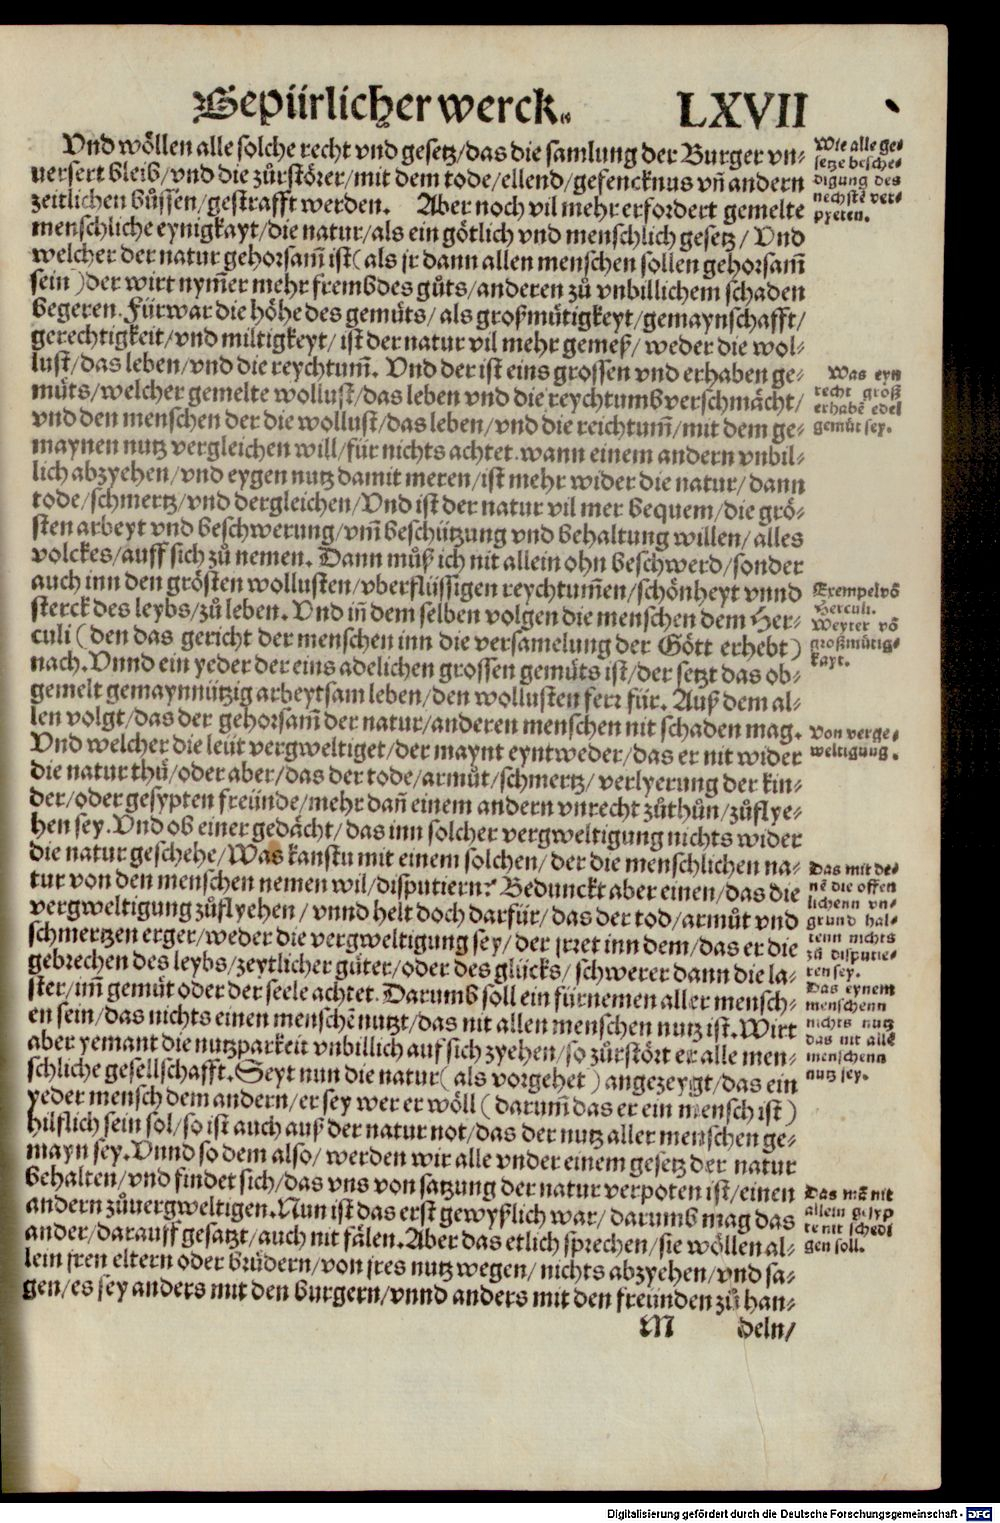 Gepürlicher werck. LXVII
Vnd wöllen alle solche recht vnd gesetz/das die samlung der Burger vn-
uersert bleib/vnd die zůrstörer/mit dem tode/ellend/gefencknus vn̄ andern
zeitlichen bůssen/gestrafft werden. Aber noch vil mehr erfordert gemelte
menschliche eynigkayt/die natur/als ein götlich vnd menschlich gesetz/ Vnd
welcher der natur gehorsam̄ ist(als jr dann allen menschen sollen gehorsam̄
sein)der wirt nym̄er mehr frembdes gůts/anderen zů vnbillichem schaden
begeren. Fürwar die höhe des gemůts/ als großmůtigkeyt/gemaynschafft/
gerechtigkeit/vnd miltigkeyt/ ist der natur vil mehr gemeß/ weder die wol-
lust/das leben/vnd die reychtum̄. Vnd der ist eins grossen vnd erhaben ge-
můts/welcher gemelte wollust/das leben vnd die reychtumb verschmächt/
vnd den menschen der die wollust/das leben/vnd die reichtum̄/mit dem ge-
maynen nutz vergleichen will/für nichts achtet. wann einem andern vnbil-
lich abzyehen/vnd eygen nutz damit meren/ist mehr wider die natur/dann
tode/schmertz/vnd dergleichen/Vnd ist der natur vil mer bequem/die grö-
sten arbeyt vnd beschwerung/vm̄ beschützung vnd behaltung willen/alles
volckes/auff sich zů nemen. Dann můß ich nit allein ohn beschwerd/sonder
auch inn den grösten wollusten/vberflüssigen reychtum̄en/schönheyt vnnd
sterck des leybs/zů leben. Vnd in̄ dem selben volgen die menschen dem Her-
culi(den das gericht der menschen inn die versamelung der Gött erhebt)
nach. Vnnd ein yeder der eins adelichen grossen gemůts ist/der setzt das ob-
gemelt gemaynnützig arbeytsam leben/den wollusten ferr für. Auß dem al-
len volgt/das der gehorsam̄ der natur/anderen menschen nit schaden mag.
Vnd welcher die leüt vergweltiget/der maynt eyntweder/das er nit wider
die natur thů/oder aber/das der tode/armůt/schmertz/ verlyerung der kin-
der/oder gesypten freünde/mehr dan̄ einem andern vnrecht zůthůn/zůflye-
hen sey. Vnd ob einer gedächt/das inn solcher vergweltigung nichts wider
die natur geschehe/Was kanstu mit einem solchen/der die menschlichen na-
tur von den menschen nemen wil/disputiern? Bedunckt aber einen/das die
vergweltigung zůflyehen/vnnd helt doch darfür/das der tod/armůt vnd
schmertzen erger/weder die vergweltigung sey/der jrret inn dem/das er die
gebrechen des leybs/zeytlicher güter/oder des glücks/schwerer dann die la-
ster/im̄ gemüt oder der seele achtet. Darumb soll ein fürnemen aller mensch-
en sein/das nichts einen menschē nutzt/das nit allen menschen nutz ist. Wirt
aber yemant die nutzparkeit vnbillich auf sich zyehen/so zůrstört er alle men-
schliche gesellschafft. Seyt nun die natur(als vorgehet)angezeygt/das ein
yeder mensch dem andern/er sey wer er wöll(darum̄ das er ein mensch ist)
hilflich sein sol/so ist auch auß der natur not/das der nutz aller menschen ge-
mayn sey. Vnnd so dem also/werden wir alle vnder einem gesetz der natur
behalten/vnd findet sich/das vns von satzung der natur verpoten ist/einen
andern zůuergweltigen. Nun ist das erst gewyßlich war/darumb mag das
ander/darauff gesatzt/auch nit fälen. Aber das etlich sprechen/sie wöllen al-
lein jren eltern oder brüdern/von jres nutz wegen/nichts abzyehen/vnd sa-
gen/es sey anders mit den burgern/vnnd anders mit den freünden zů han-
M deln/
Wie alle ge-
setze besche-
digung des
nechstē ver-
pyeten.
Was eyn
recht groß
erhabē edel
gemůt sey.
Exempel vō
Herculi.
Weyter vō
großmütig-
kayt.
Von verge-
weltigung.
Das mit de-
nē die offen
lichenn vn-
grund hal-
tenn nichts
zů disputie-
ren sey.
Das eynem
menschenn
nichts nutz
das nit allē
menschenn
nutz sey.
Das mā nit
allein gesyp
te nit schedi
gen soll.
Digitalisierung gefördert durch die Deutsche Forschungsgemeinschaft - DFG